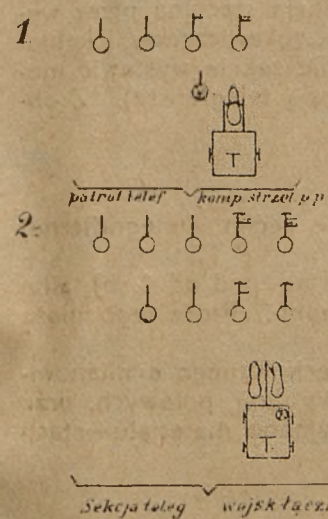 1
T
patrol telef komp. strzel. p.p
2.
T
Sekcja teleg wojsk łączn